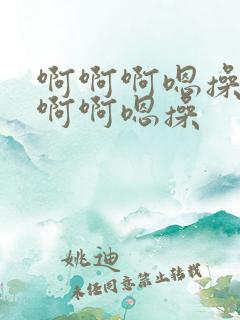 啊啊啊嗯操
啊啊嗯操
姚迪
未经同意禁止转载